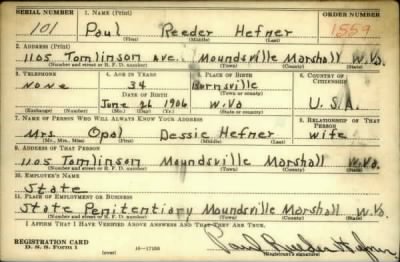 SERIAL NUMBER 1. NAME (Print) ORDER NUMBER
101 Paul Reeder Hefner 1559
(First) (Middle) (Last)
2. ADDRESS (Print)
1105 Tomlinson Ave. Moundsville Marshall W.Va.
(Number and street or R. F. D. number) (Town) (County) (State)
3. TELEPHONE 4. AGE IN YEARS 5. PLACE OF BIRTH 6. COUNTRY OF CITIZENSHIP
None 34 Burnsville
(Town or county)
DATE OF BIRTH
June 26 1906 W.Va U.S.A.
(Exchange) (Number) (Mo.) (Day) (Yr.) (State or country)
7. NAME OF PERSON WHO WILL ALWAYS KNOW YOUR ADDRESS 8. RELATIONSHIP OF THAT PERSON
Mrs. Opal Dessie Hefner Wife
(Mr., Mrs., Miss) (First) (Middle) (Last)
9. ADDRESS OF THAT PERSON
1105 Tomlinson Moundsville Marshall W.Va.
(Number and street or R. F. D. number) (Town) (County) (State)
10. EMPLOYER'S NAME
State
11. PLACE OF EMPLOYMENT OR BUSINESS
State Penitentiary Moundsville Marshall W.Va.
(Number and street or R. F. D. number) (Town) (County) (State)
I AFFIRM THAT I HAVE VERIFIED ABOVE ANSWERS AND THAT THEY ARE TRUE.
REGISTRATION CARD
D. S. S. Form 1 16—17105 Paul Reeder Hefner
(Registrant's signature)